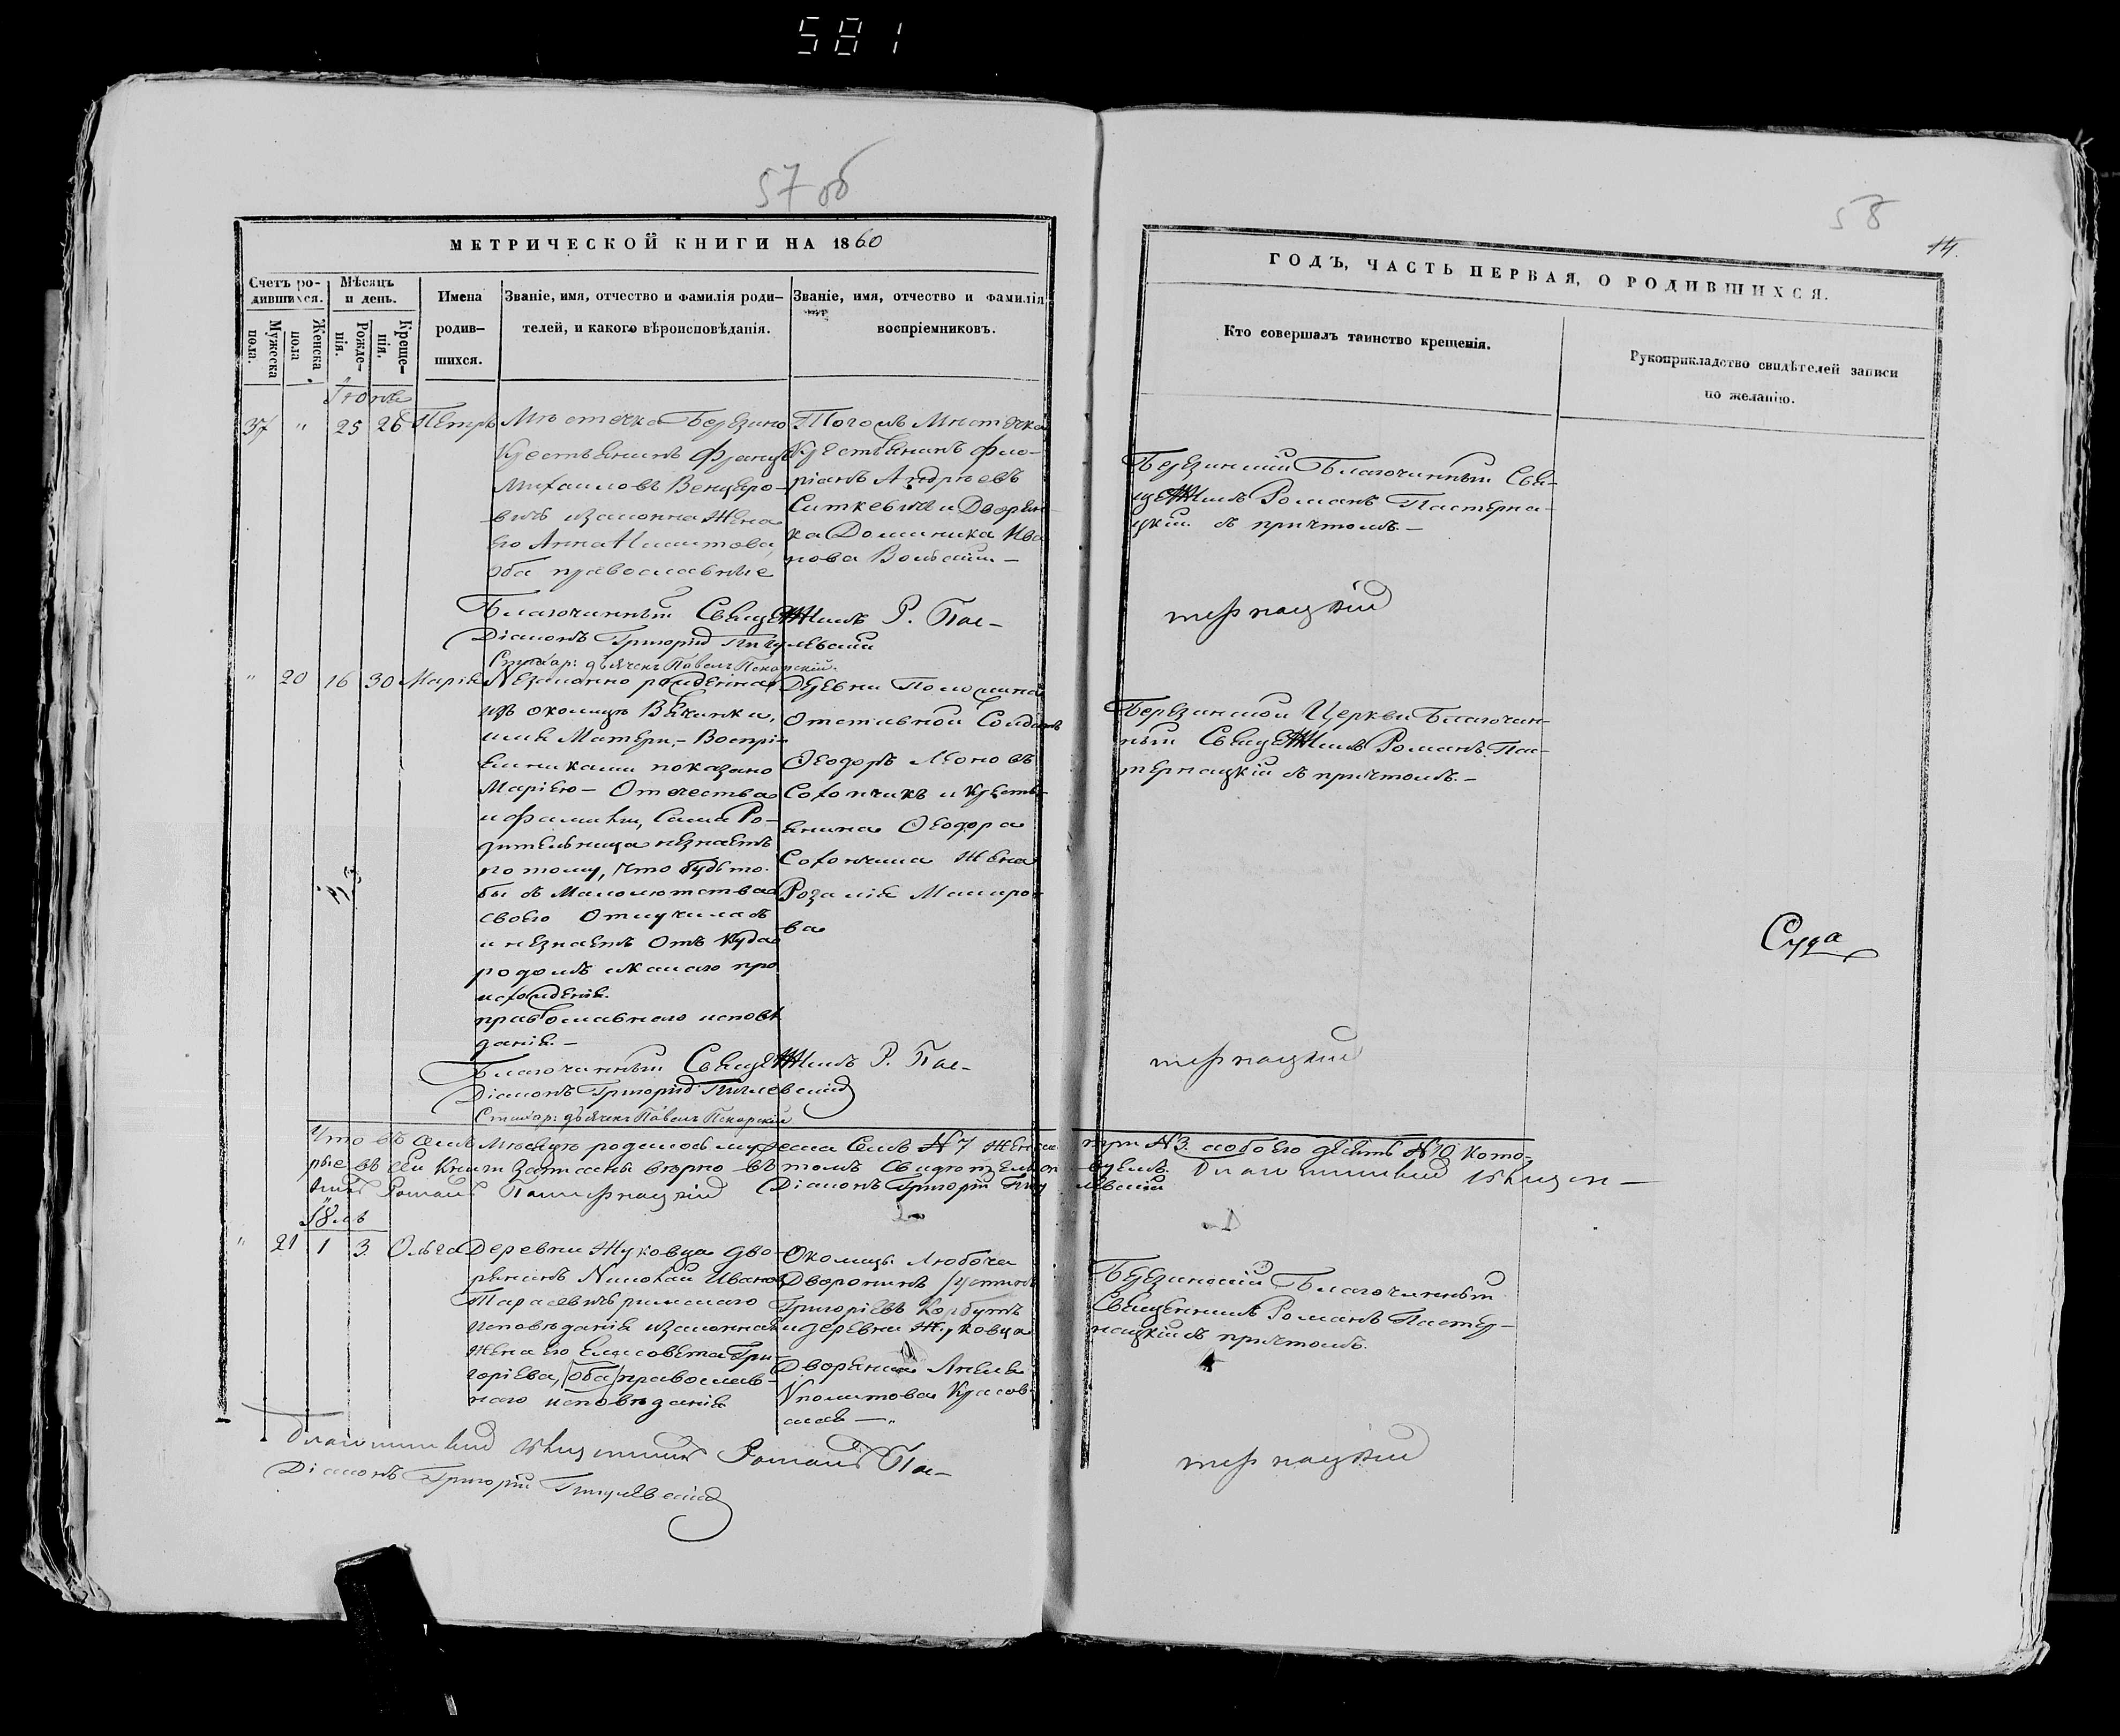 581
57 об
58
14.
МЕТРИЧЕСКОЙ КНИГИ НА 1860
ГОДЪ, ЧАСТЬ ПЕРВАЯ, О РОДИВШИХСЯ.
Счетъ ро-
дившихся.
Мужеска
пола.
Женска
пола
Мѣсяцъ
и день.
Рожде-
нія.
Креще-
нія.
Имена
родив-
шихся.
Званіе, имя, отчество и фамилія роди-
телей, и какого вѣроисповѣданія.
Званіе, имя, отчество и фамилія
воспріемниковъ.
Кто совершалъ таинство крещенія.
Рукоприкладство свидѣтелей записи
по желанію.
Іюнь
37 " 25 26 Петръ
Мѣстечка Березино
Крестьянинъ Францъ
Михаиловъ Венцеро-
вичъ изаконная Жена
Его Анна
оба православные
Тогожъ Мѣстечка
Крестьянинъ Фло-
ріанъ Андреевъ
Ситкевичъ и Дворян-
ка Доминика Ива
нова
Березинскій Благочинный Свя-
щенникъ Романъ Пастерна-
цкій съ причтомъ.-
Благочинный Священникъ Р. Пас-
тернацкій
Діаконъ Григорій Пигулевскій
Стихар: дьячекъ Павелъ Пекарскій.
" 20 16 30 Марія
Незаконно рожденная
изъ околицы Вячинки,
имя Матери,- Воспрі-
емниками показано
Маріею- Отчества
и фамиліи, Сама Ро-
дительница незнаетъ
потому, что будьто-
бы въ Малолѣтства
своего Отлучилась
и незнаетъ Отъ Куда
родомъ икакого про
исхожденія.
православнаго исповѣ
данія.-
Деревни
Отставной Солдатъ
Ѳеодоръ Леоновъ
Сохончикъ и Кресть-
янина Ѳеодора
Сохончика Жена
Розалія Макаро-
ва
Березинской Церкви Благочин-
ный Священникъ Романъ Пас-
тернацкій съ причтомъ.-
Суда
Благочинный Священникъ Р. Пас-
тернацкій
Діаконъ Григорій Пигулевскій
Стихар: дьячекъ Павелъ Пекарскій
Что въ семъ Мѣсяцѣ родилось мужеска Семь № 7 Женска три № 3. обоего десять № 10 Кото-
рые въ сей Книги Записаны вѣрно въ томъ Свидѣтельствуемъ. Благочинный Священ-
никъ Романъ Пастернацкій Діаконъ Григорій Пигулевскій
Іюль
" 21 1 3 Ольга
Деревни Жуковца дво-
рянинъ Николай Ивановъ
Тарасевичъ римскаго
исповѣданія изаконная
жена его Елисовета Гри-
горіева, (оба) православ-
наго исповѣданія
Околицы Любочи
Дворянинъ Устинъ
Григоріевъ Корбутъ
и деревни Жуковца
Дворянка Анеля
Красов-
ская —"
Березинскій Благочинный
Священникъ Романъ Пастер-
нацкій съ причтомъ.
Благочинный Священникъ Романъ Пас-
тернацкій
Діаконъ Григорій Пигулевскій